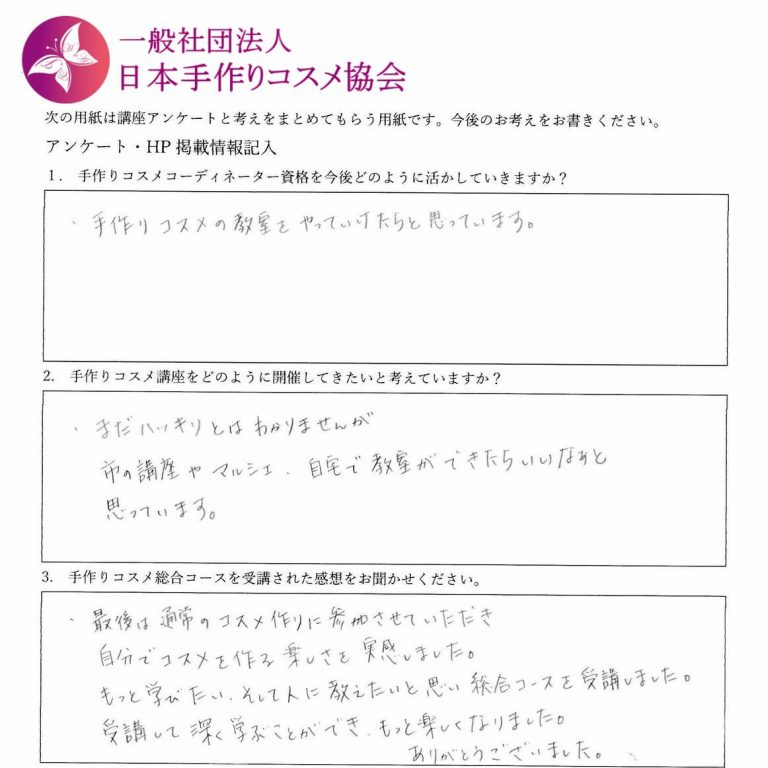 一般社団法人
日本手作りコスメ協会
次の用紙は講座アンケートと考えをまとめてもらう用紙です。今後のお考えをお書きください。
アンケート・HP 掲載情報記入
1. 手作りコスメコーディネーター資格を今後どのように活かしていきますか？
・手作りコスメの教室をやっていけたらと思っています。
2. 手作りコスメ講座をどのように開催してきたいと考えていますか？
・まだハッキリとはわかりませんが
市の講座やマルシェ、自宅で教室ができたらいいなぁと
思っています。
3. 手作りコスメ総合コースを受講された感想をお聞かせください。
・最後は通常のコスメ作りに参加させていただき
自分でコスメを作る楽しさを実感しました。
もっと学びたい、そして人に教えたいと思い総合コースを受講しました。
受講して深く学ぶことができ、もっと楽しくなりました。
ありがとうございました。